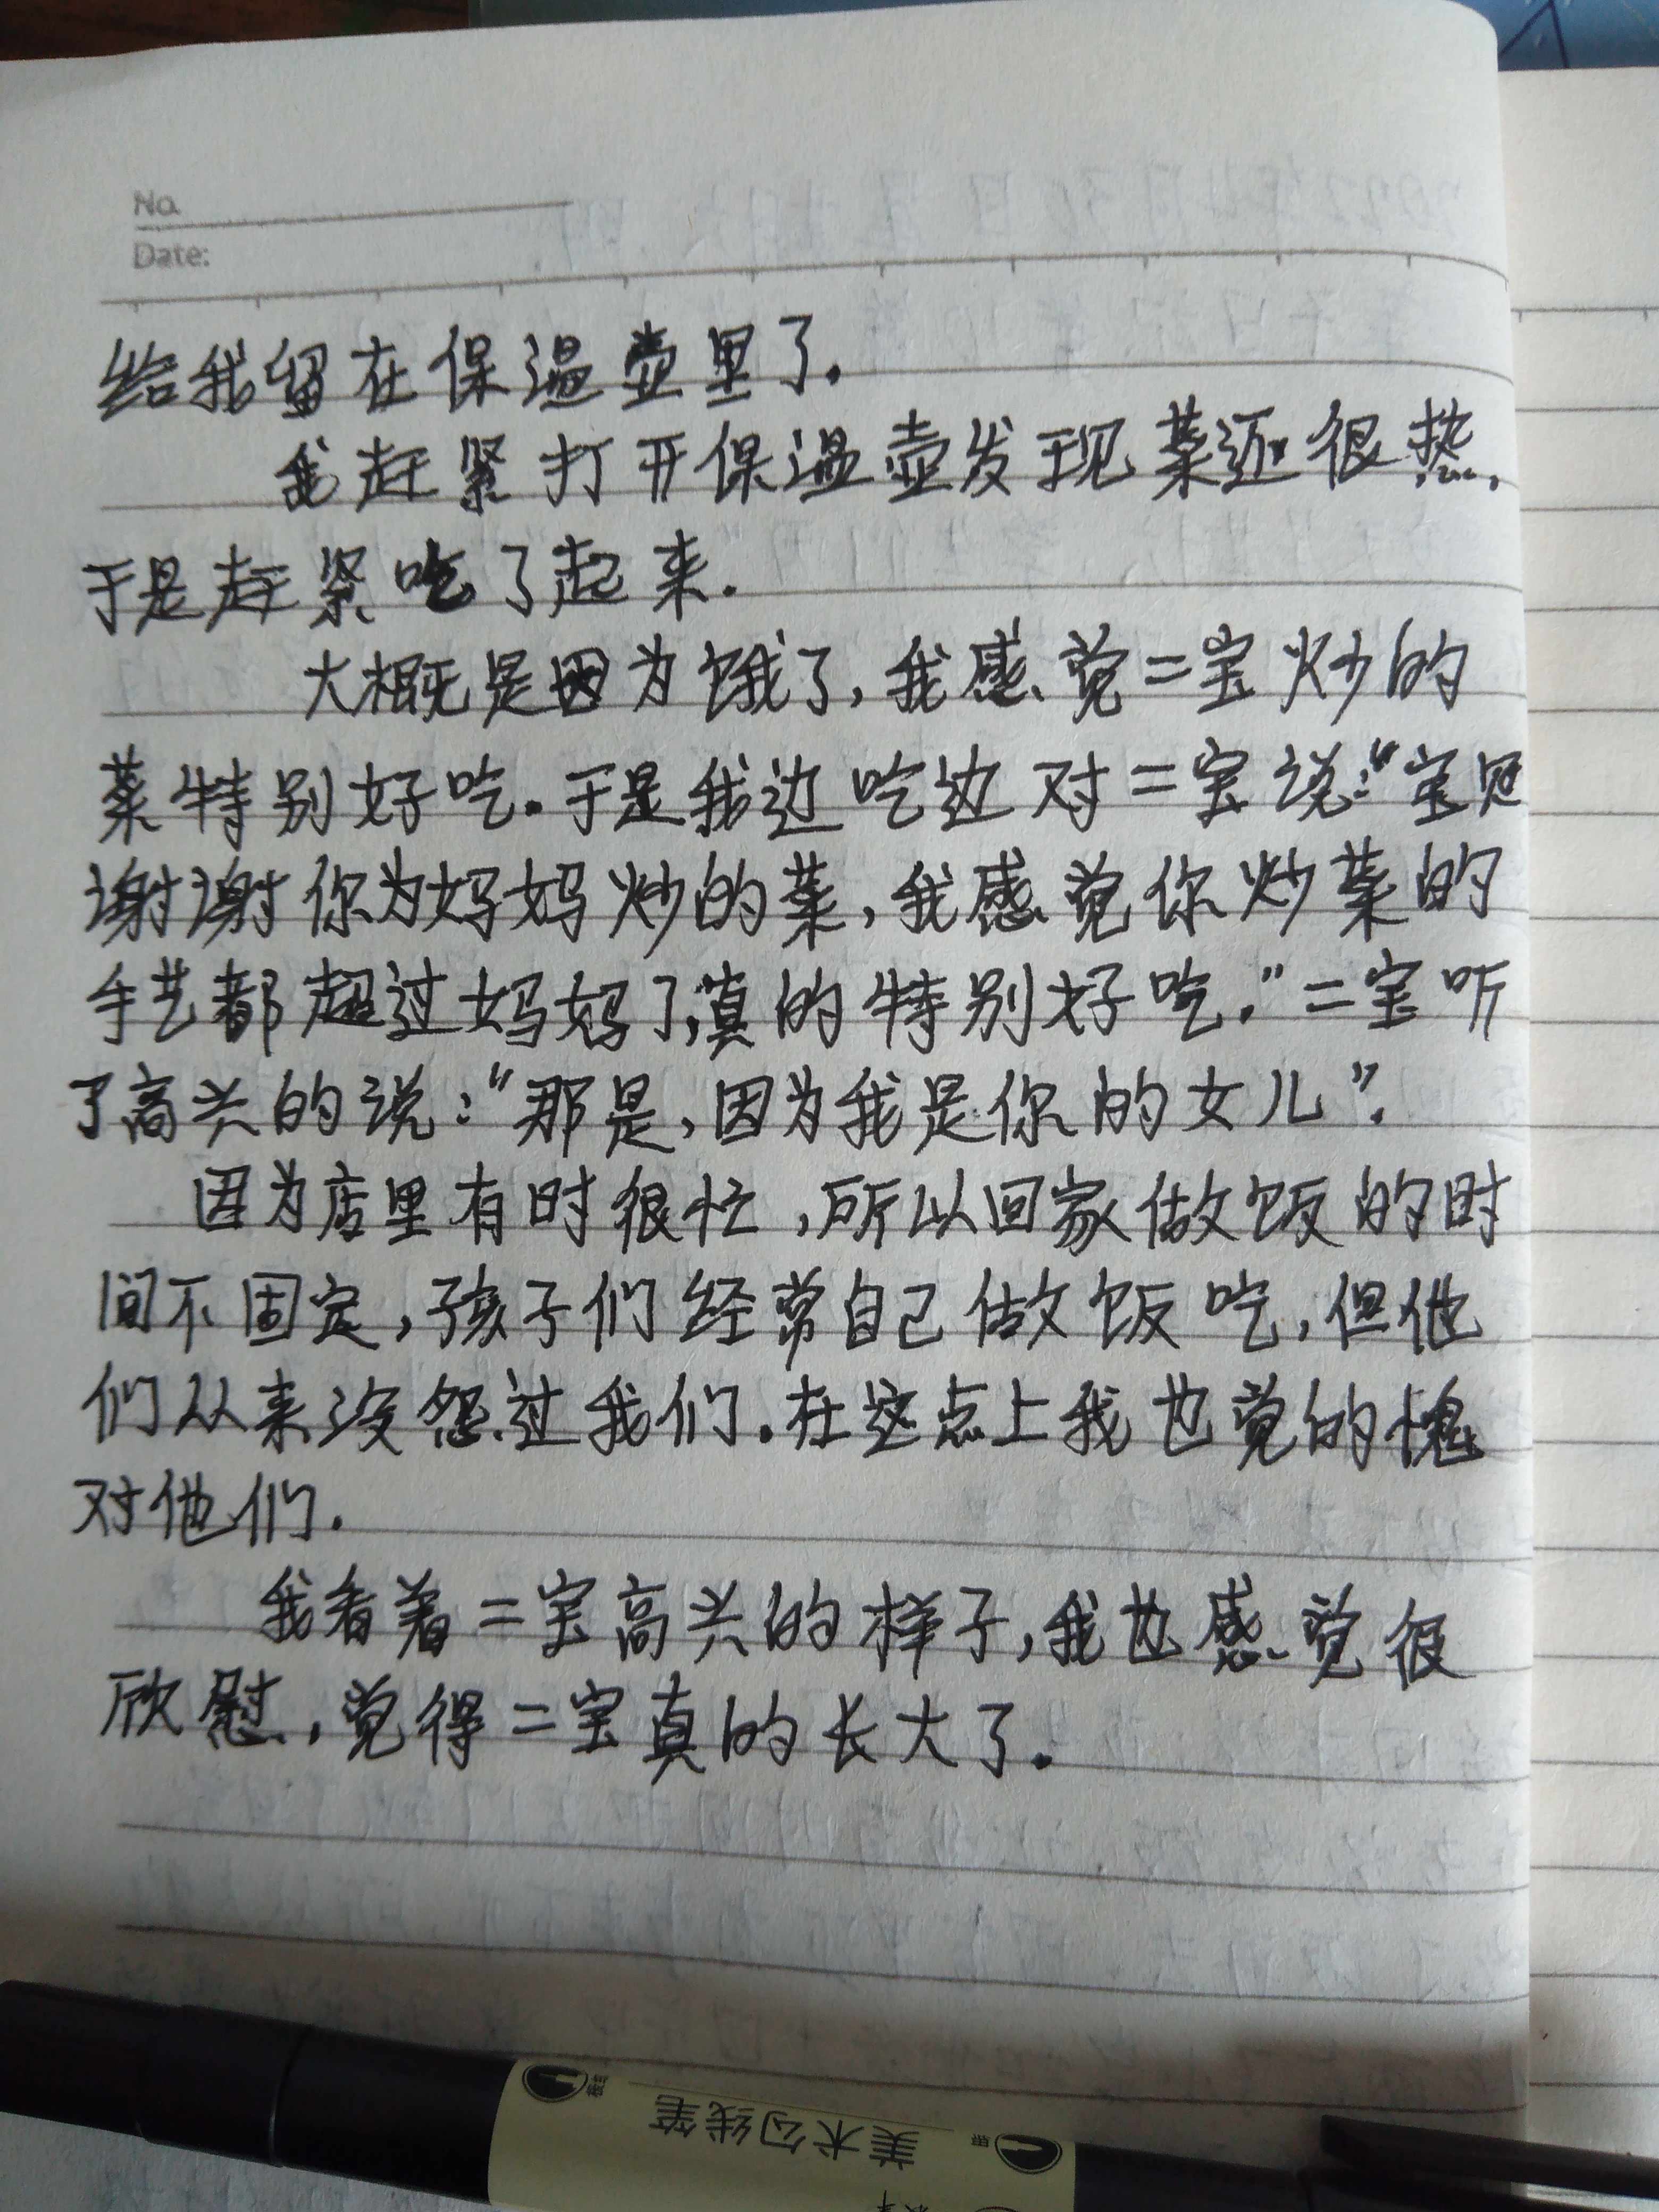 No.
Date:
给我留在保温壶里了.
我赶紧打开保温壶发现菜还很热,
于是赶紧吃了起来.
大概是因为饿了,我感觉二宝炒的
菜特别好吃.于是我边吃边对二宝说:“宝贝
谢谢你为妈妈炒的菜,我感觉你炒菜的
手艺都超过妈妈了,真的特别好吃.”二宝听
了高兴的说:“那是,因为我是你的女儿”.
因为店里有时很忙,所以回家做饭的时
间不固定,孩子们经常自己做饭吃,但他
们从来没怨过我们.在这点上我也觉的愧
对他们.
我看着二宝高兴的样子,我也感觉很
欣慰,觉得二宝真的长大了.
美术勾线笔